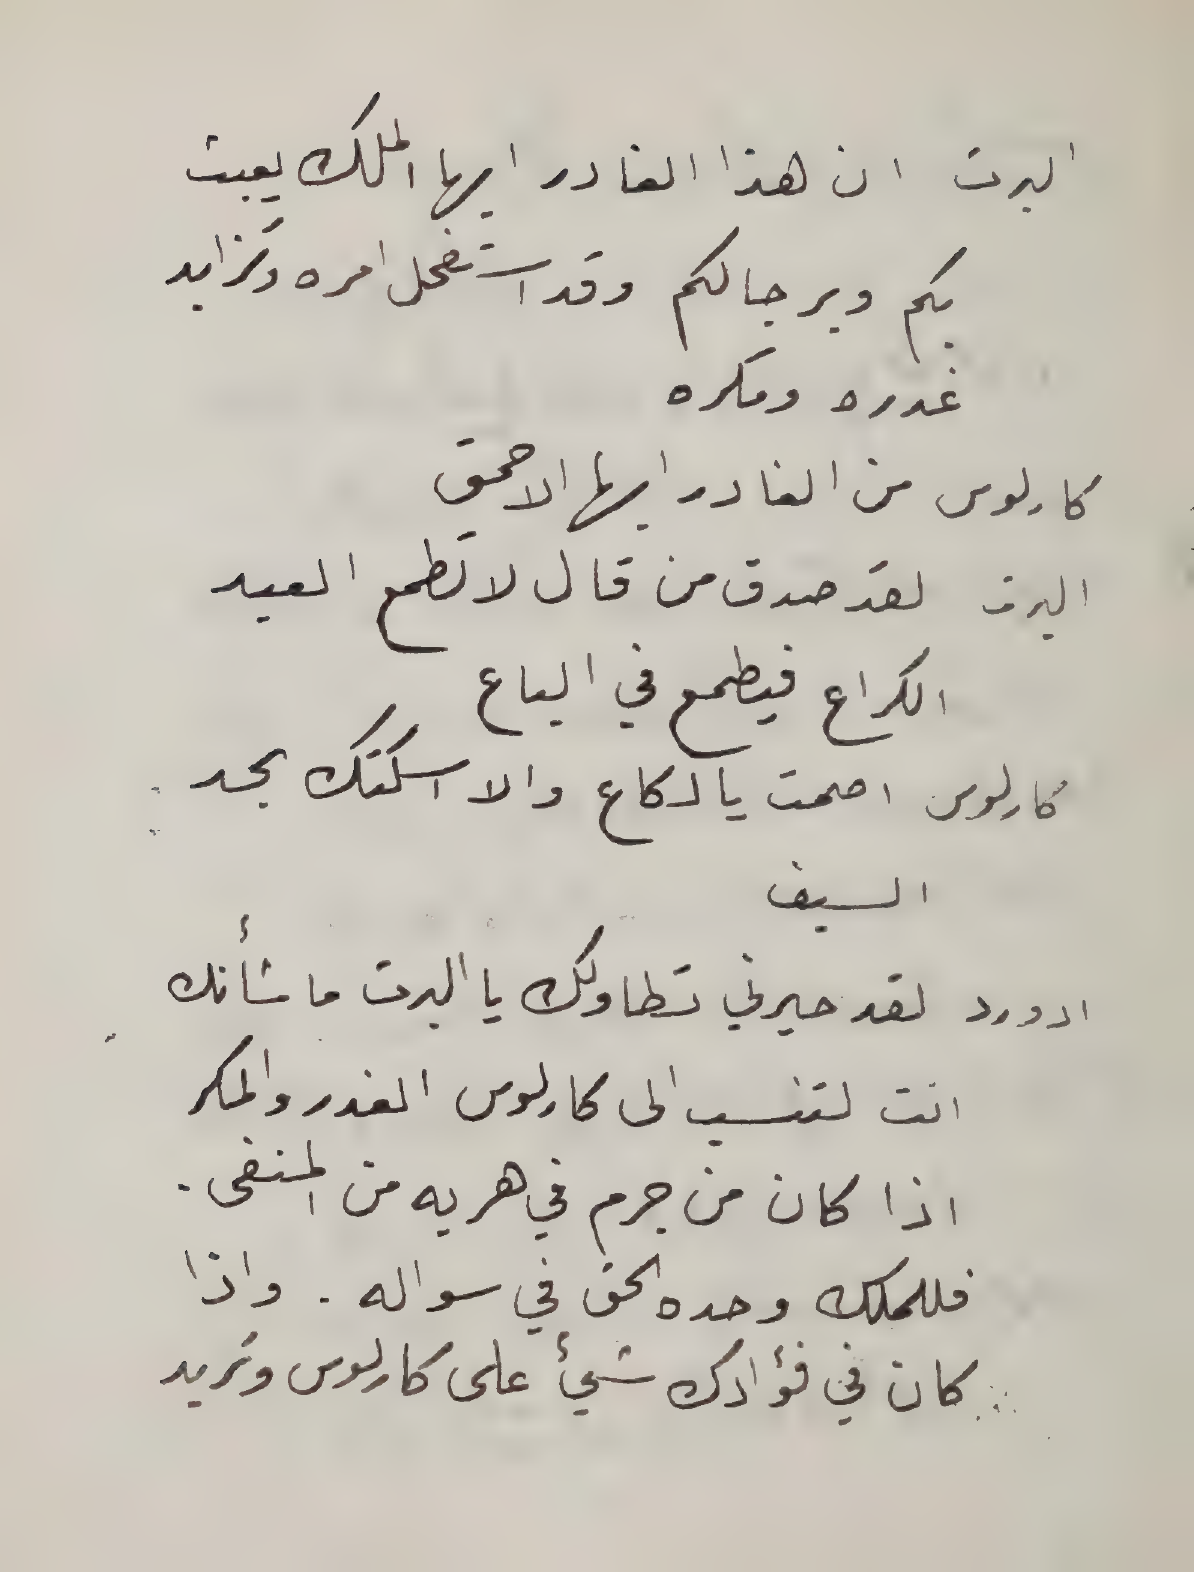 البرت ان هذا الغادر ايها الملك يعبث
بكم وبرجالكم وقد استفحل امره وتزايد
غدره ومكره
كارلوس من الغادر ايها الاحمق
البرت لقد صدق من قال لا تطمع العبد
الكراع فيطمع في الباع
كارلوس اصمت يا لكاع والا اسكتك بحد
السيف
ادورد لقد حيرني تطاولك يا البرت ما شأنك
انت لتنسب الى كارلوس الغدر والمكر
اذا كان من جرم في هربه من المنفى .
فللملك وحده الحق في سواله . واذا
كان في فؤادك شيئ على كارلوس وتريد